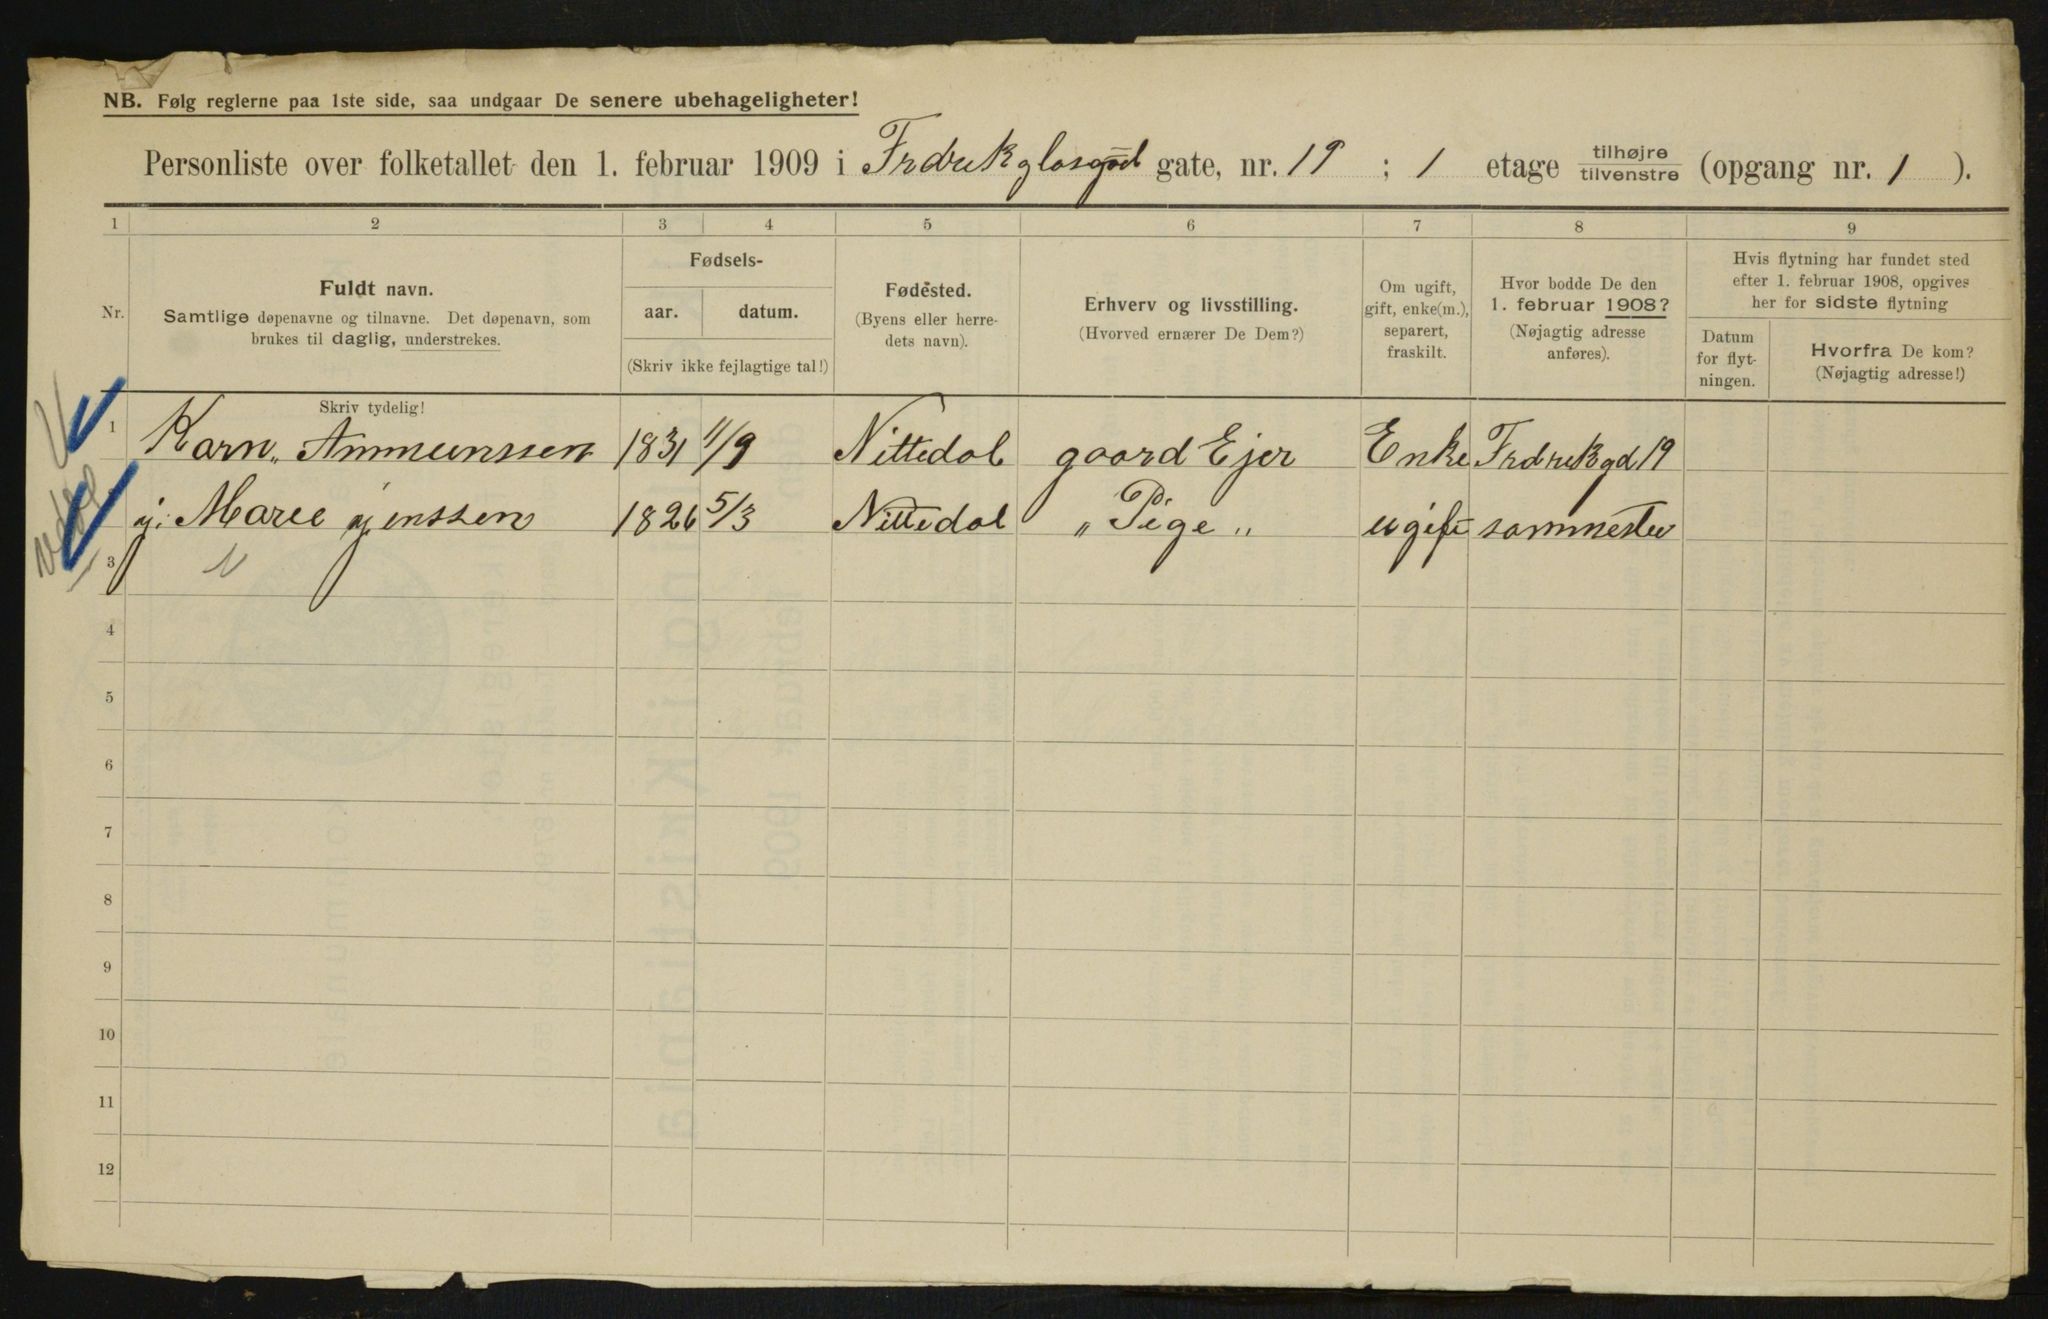 NB. Følg reglerne paa 1ste side, saa undgaar De senere ubehageligheter!
Personliste over folketallet den 1. februar 1909 i Frdrekglosgd gate, nr. 19 ; 1 etage tilhøjre tilvenstre (opgang nr. 1 ).
1 2 3 4 5 6 7 8 9
Nr.
Fuldt navn.
Samtlige døpenavne og tilnavne. Det døpenavn, som
brukes til daglig, understrekes.
Fødsels-
aar. datum.
(Skriv ikke fejlagtige tal!)
Fødested.
(Byens eller herre-
dets navn).
Erhverv og livsstilling.
(Hvorved ernærer De Dem?)
Om ugift,
gift, enke(m.),
separert,
fraskilt.
Hvor bodde De den
1. februar 1908?
(Nøjagtig adresse
anføres).
Hvis flytning har fundet sted
efter 1. februar 1908, opgives
her for sidste flytning
Datum
for flyt-
ningen.
Hvorfra De kom?
(Nøjagtig adresse!)
Skriv tydelig!
1 Karn „ Ammunssen 1831 11/9 Nittedal gaard Ejer Enke Frdrekgd 19
j: Maree jenssen 1826 5/3 Nittedal „ Pige „ ugift sammested
3
4
5
6
7
8
9
10
11
12